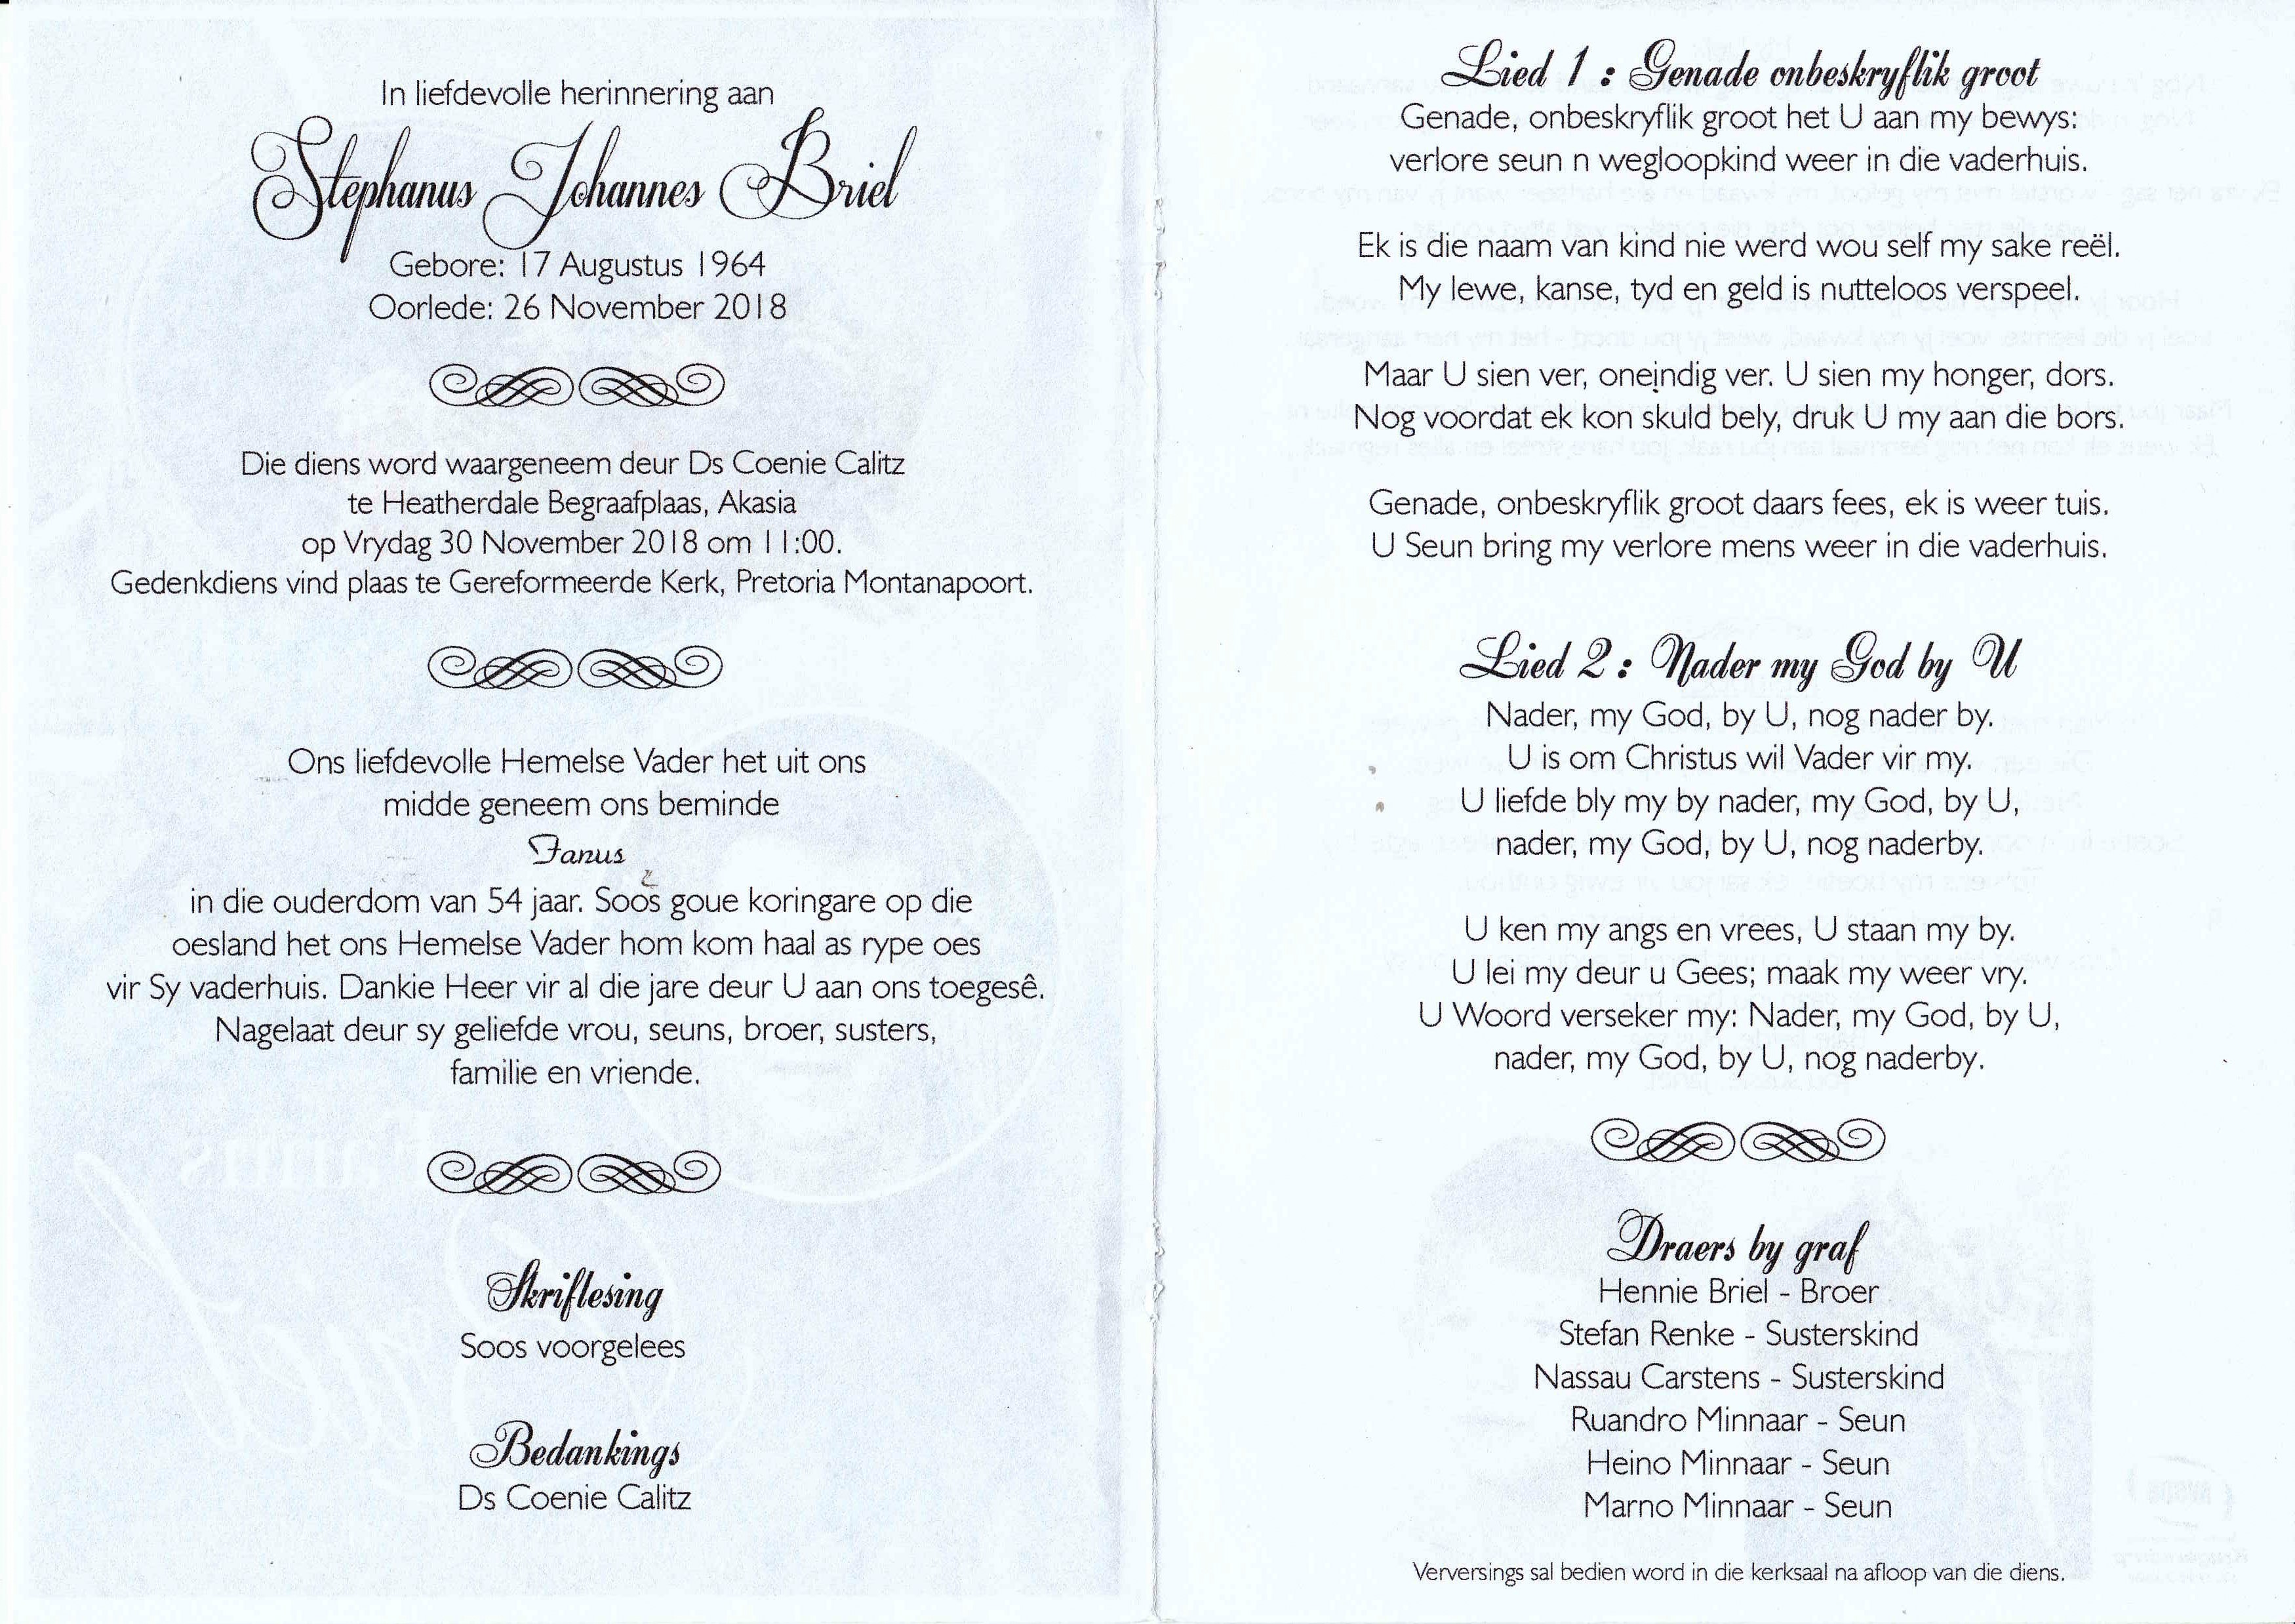 In liefdevolle herinnering aan
Stephanus Johannes Briel
Gebore: 17 Augustus 1964
Oorlede: 26 November 2018
Die diens word waargeneem deur Ds Coenie Calitz
te Heatherdale Begraafplaas, Akasia
op Vrydag 30 November 2018 om 11:00.
Gedenkdiens vind plaas te Gereformeerde Kerk, Pretoria Montanapoort.
Ons liefdevolle Hemelse Vader het uit ons
midde geneem ons beminde
Fanus
in die ouderdom van 54 jaar. Soos goue koringare op die
oesland het ons Hemelse Vader hom kom haal as rype oes
vir Sy vaderhuis. Dankie Heer vir al die jare deur U aan ons toegesê.
Nagelaat deur sy geliefde vrou, seuns, broer, susters,
familie en vriende.
Skriflesing
Soos voorgelees
Bedankings
Ds Coenie Calitz
Lied 1 : Genade onbeskryflik groot
Genade, onbeskryflik groot het U aan my bewys:
verlore seun n wegloopkind weer in die vaderhuis.
Ek is die naam van kind nie werd wou self my sake reël.
My lewe, kanse, tyd en geld is nutteloos verspeel.
Maar U sien ver, oneindig ver. U sien my honger, dors.
Nog voordat ek kon skuld bely, druk U my aan die bors.
Genade, onbeskryflik groot daars fees, ek is weer tuis.
U Seun bring my verlore mens weer in die vaderhuis.
Lied 2 : Nader my God by U
Nader, my God, by U, nog nader by.
U is om Christus wil Vader vir my.
U liefde bly my by nader, my God, by U,
nader, my God, by U, nog naderby.
U ken my angs en vrees, U staan my by.
U lei my deur u Gees; maak my weer vry.
U Woord verseker my: Nader, my God, by U,
nader, my God, by U, nog naderby.
Draers by graf
Hennie Briel - Broer
Stefan Renke - Susterskind
Nassau Carstens - Susterskind
Ruandro Minnaar - Seun
Heino Minnaar - Seun
Marno Minnaar - Seun
Verversings sal bedien word in die kerksaal na afloop van die diens.